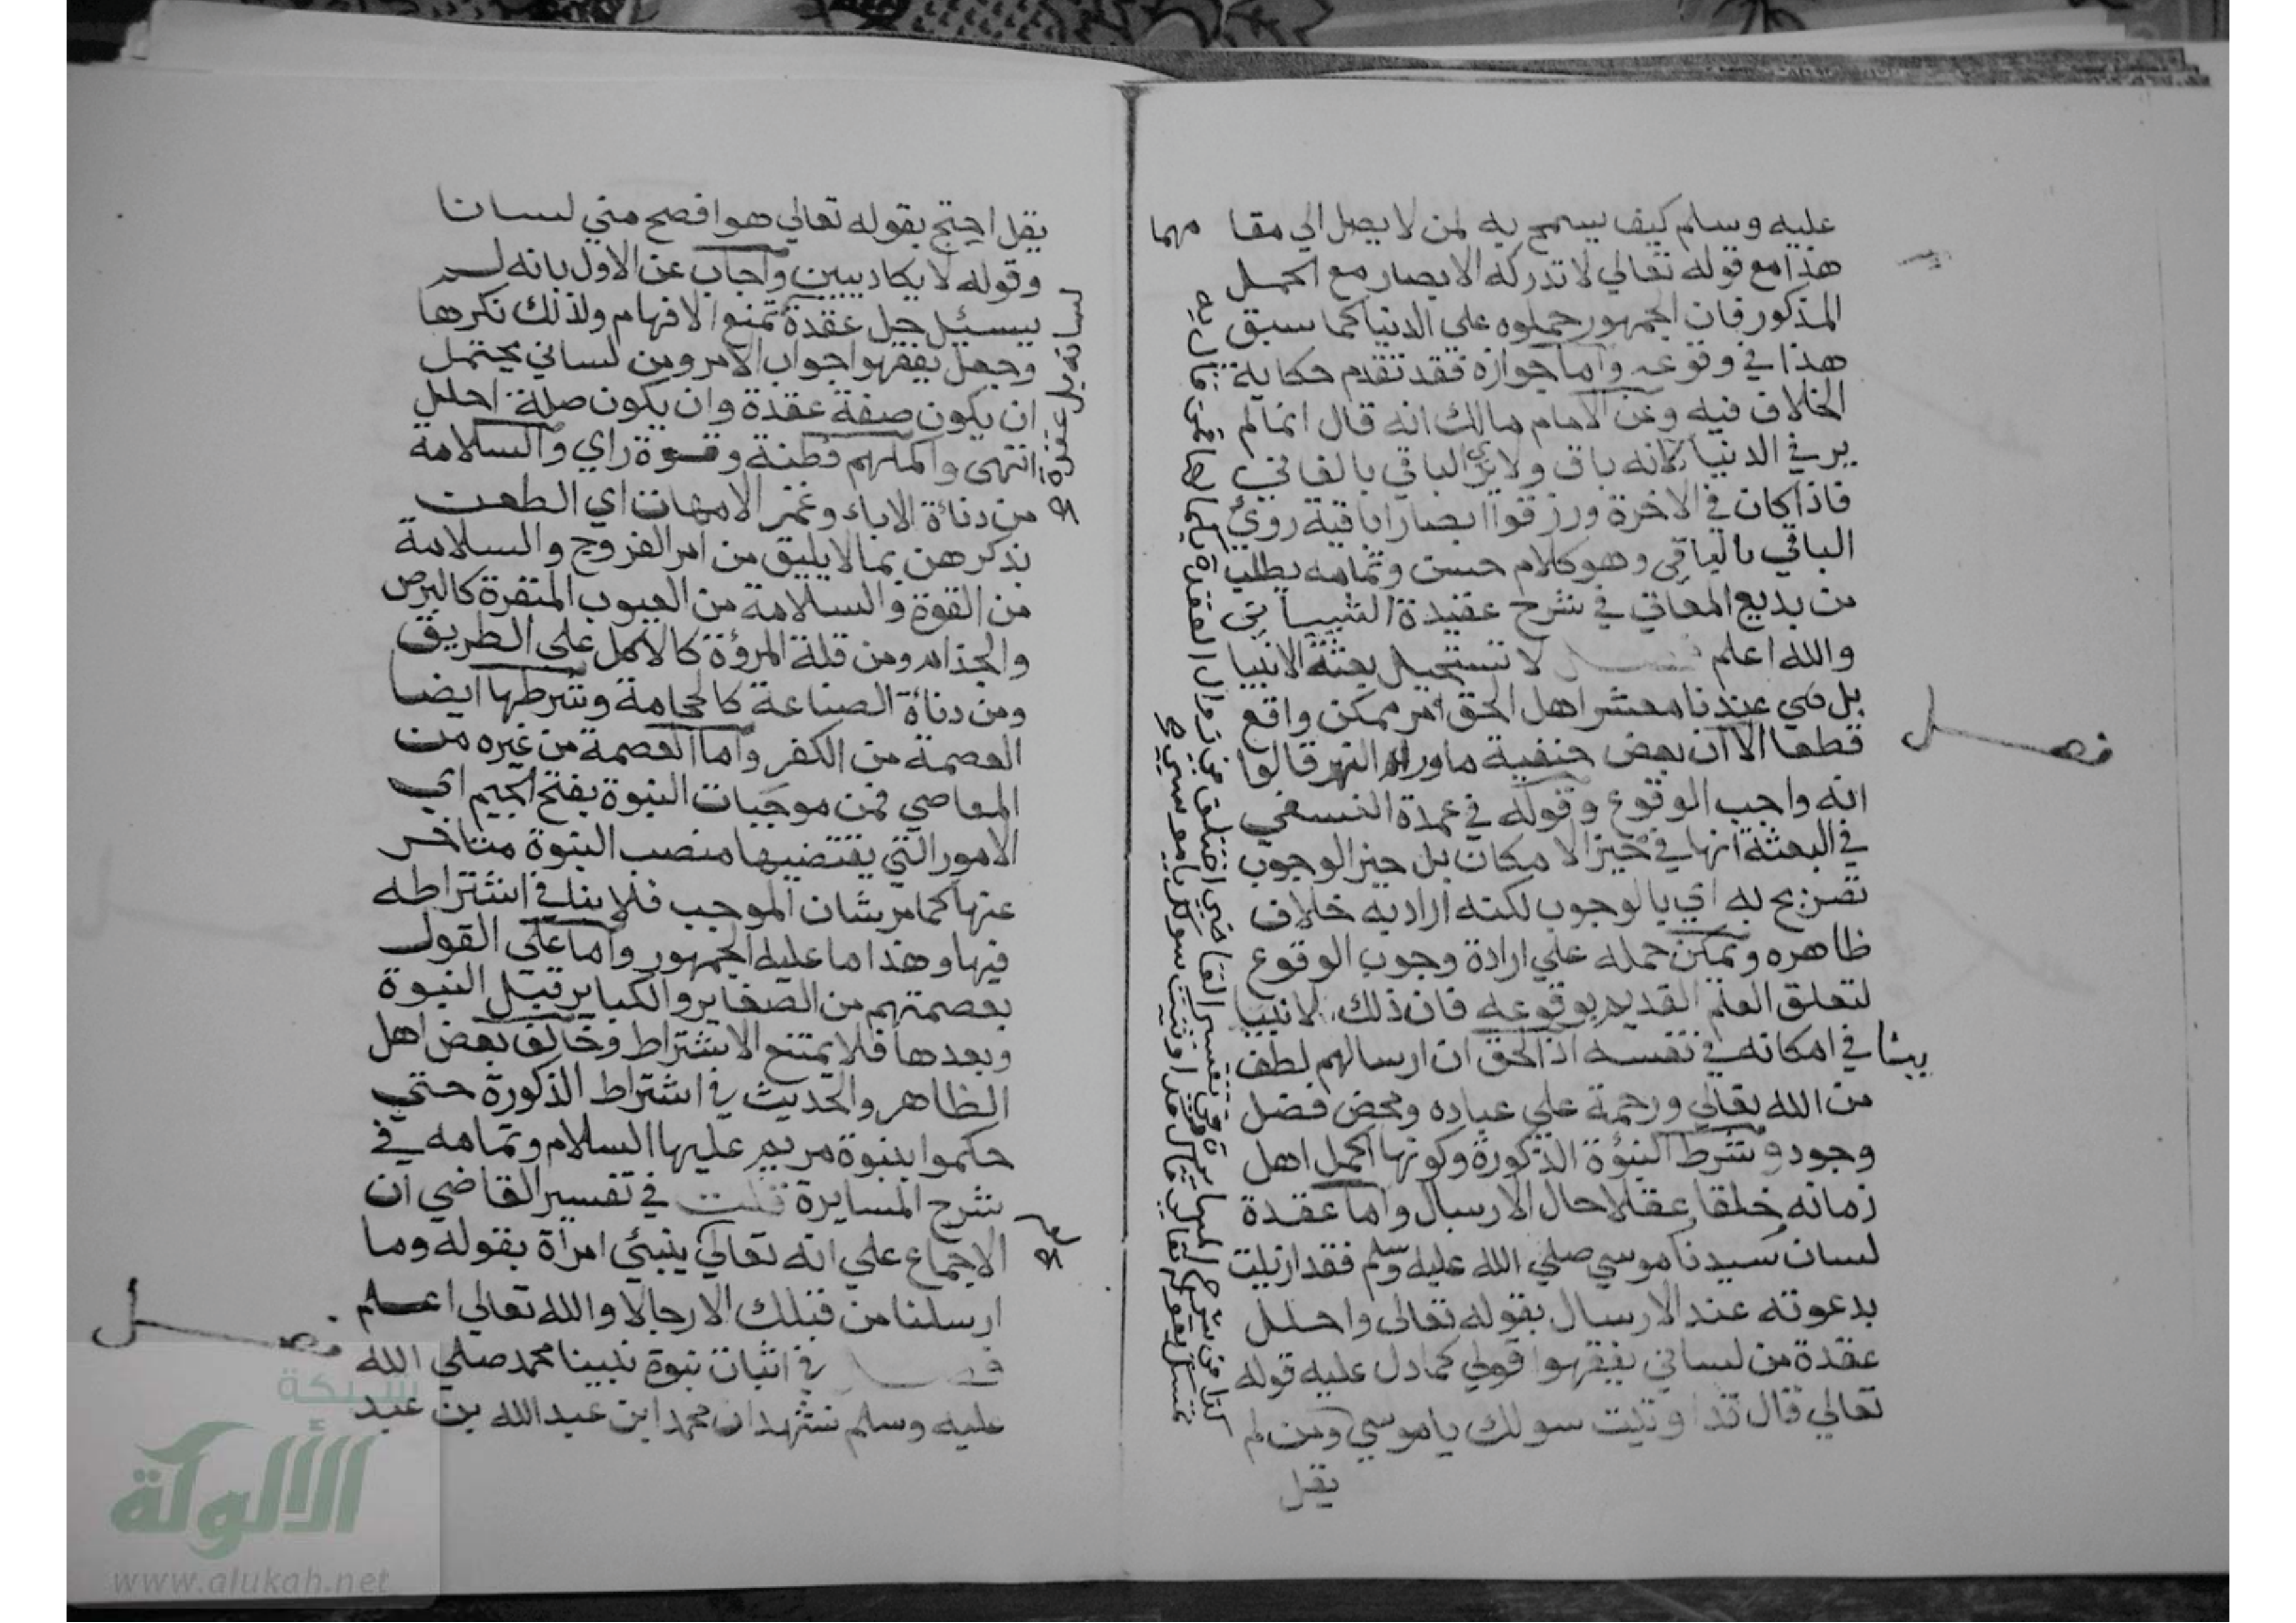 عليه وسلم كيف يسمح به لمن لا يصل الي مقا مهما
هذا مع قوله تعالي لا تدركه الابصار مع الحمل
المذكور فان الجمهور حملوه علي الدنيا كما سبق
هذا في وقوعه واما جوازه فقد تقدم حكاية
الخلاف فيه وعن الامام مالك انه قال انما لم
ير في الدنيا لانه باق ولا يري الباقي بالفاني
فاذا كان في الاخرة ورزقوا ابصارا باقية روئ
الباقي بالباقي وهو كلام حسن وتمامه يطلب
من بديع المعاني في شرح عقيدة الشيباني
والله اعلم فصل لا تستحيل بعثة الانبيا
بل هي عندنا معشر اهل الحق امر ممكن واقع
قطعا الا ان بعض حنفية ما وراء النهر قالوا
انه واجب الوقوع وقوله في عمدة النسفي
في البعثة انها في حيز الامكان بل حيز الوجوب
تصريح به اي بالوجوب لكنه اراد به خلاف
ظاهره ويمكن حمله علي ارادة وجوب الوقوع
لتعلق العلم القديم بوقوعه فان ذلك لا ينبيا
في امكانه في نفسه اذ الحق ان ارسالهم لطف
من الله تعالي ورحمة علي عباده ومحض فضل
وجود وشرط النبوة الذكورة وكونها اكمل اهل
زمانه خلقا عقلا حال الارسال واما عقدة
لسان سيدنا موسي صلي الله عليه وسلم فقد ازيلت
بدعوته عند الارسال بقوله تعالى واحلل
عقدة من لساني يفقهوا قولي كما دل عليه قوله
تعالي قال قد اوتيت سولك ياموسي ومن لم
يقل
فصل
يقل احتج بقوله تعالي هو افصح مني لسانا
وقوله لا يكاد يبين واجاب عن الاول بانه لم
يسئل حل عقدة تمنع الافهام ولذلك نكرها
وجعل يفقهوا جواب الامر ومن لساني يحتمل
ان يكون صفة عقدة وان يكون صلة احلل
انتهى واكملهم فطنة وقوة راي والسلامة
من دناءة الاباء وغمز الامهات اي الطعن
بذكرهن بما لا يليق من امر الفروج والسلامة
من القوة والسلامة من العيوب المنفرة كالبرص
والجذام ومن قلة المروؤة كالاكل على الطريق
ومن دناءة الصناعة كالحجامة وشرطها ايضا
العصمة من الكفر واما العصمة من غيره من
المعاصي فمن موجبات النبوة بفتح الجيم اي
الامور التي يقتضيها منصب النبوة متاخر
عنها كما مر بشان الموجب فلا ينا في اشتراطه
فيها وهذا ما عليه الجمهور واما على القول
بعصمتهم من الصغاير والكباير قبل النبوة
وبعدها فلا يمتنع الاشتراط وخالف بعض اهل
الظاهر والحديث في اشتراط الذكورة حتي
حكموا بنبوة مريم عليها السلام وتمامه في
شرح المسايرة قلت في تفسير القاضي ان
الاجماع علي انه تعالي ينبئ امراة بقوله وما
ارسلنا من قبلك الا رجالا والله تعالي اعلم
فصل في اثبات نبوة نبينا محمد صلي الله
عليه وسلم نشهد ان محمد ابن عبد الله بن عبد
فصل
شبكة
الألوكة
www.alukah.net